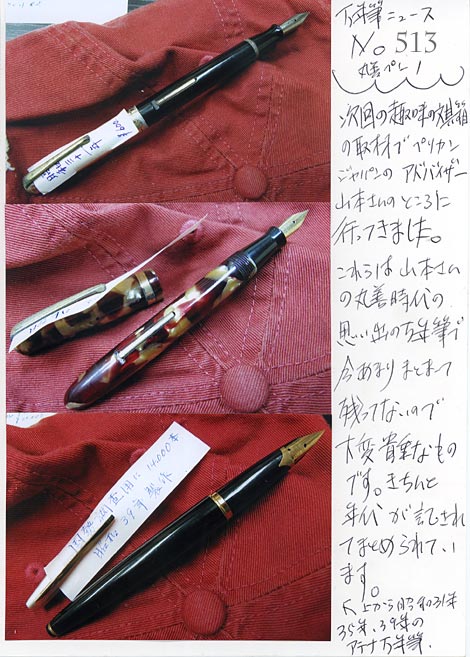 万年筆ニュース
No. 513
丸善ペン!
次回の趣味の文具箱
の取材でペリカン
ジャパンのアドバイザー
山本さんのところに
行ってきました。
これらは山本さん
の丸善時代の
思い出の万年筆で
今あまりまとまって
残ってないので
大変貴重なもの
です。きちんと
年代が記され
てまとめられてい
ます。
上から昭和31年
35年、39年の
アテナ万年筆.
昭和三十一年
¥600
国勢調査用に 14,000本
昭和 39年 製作